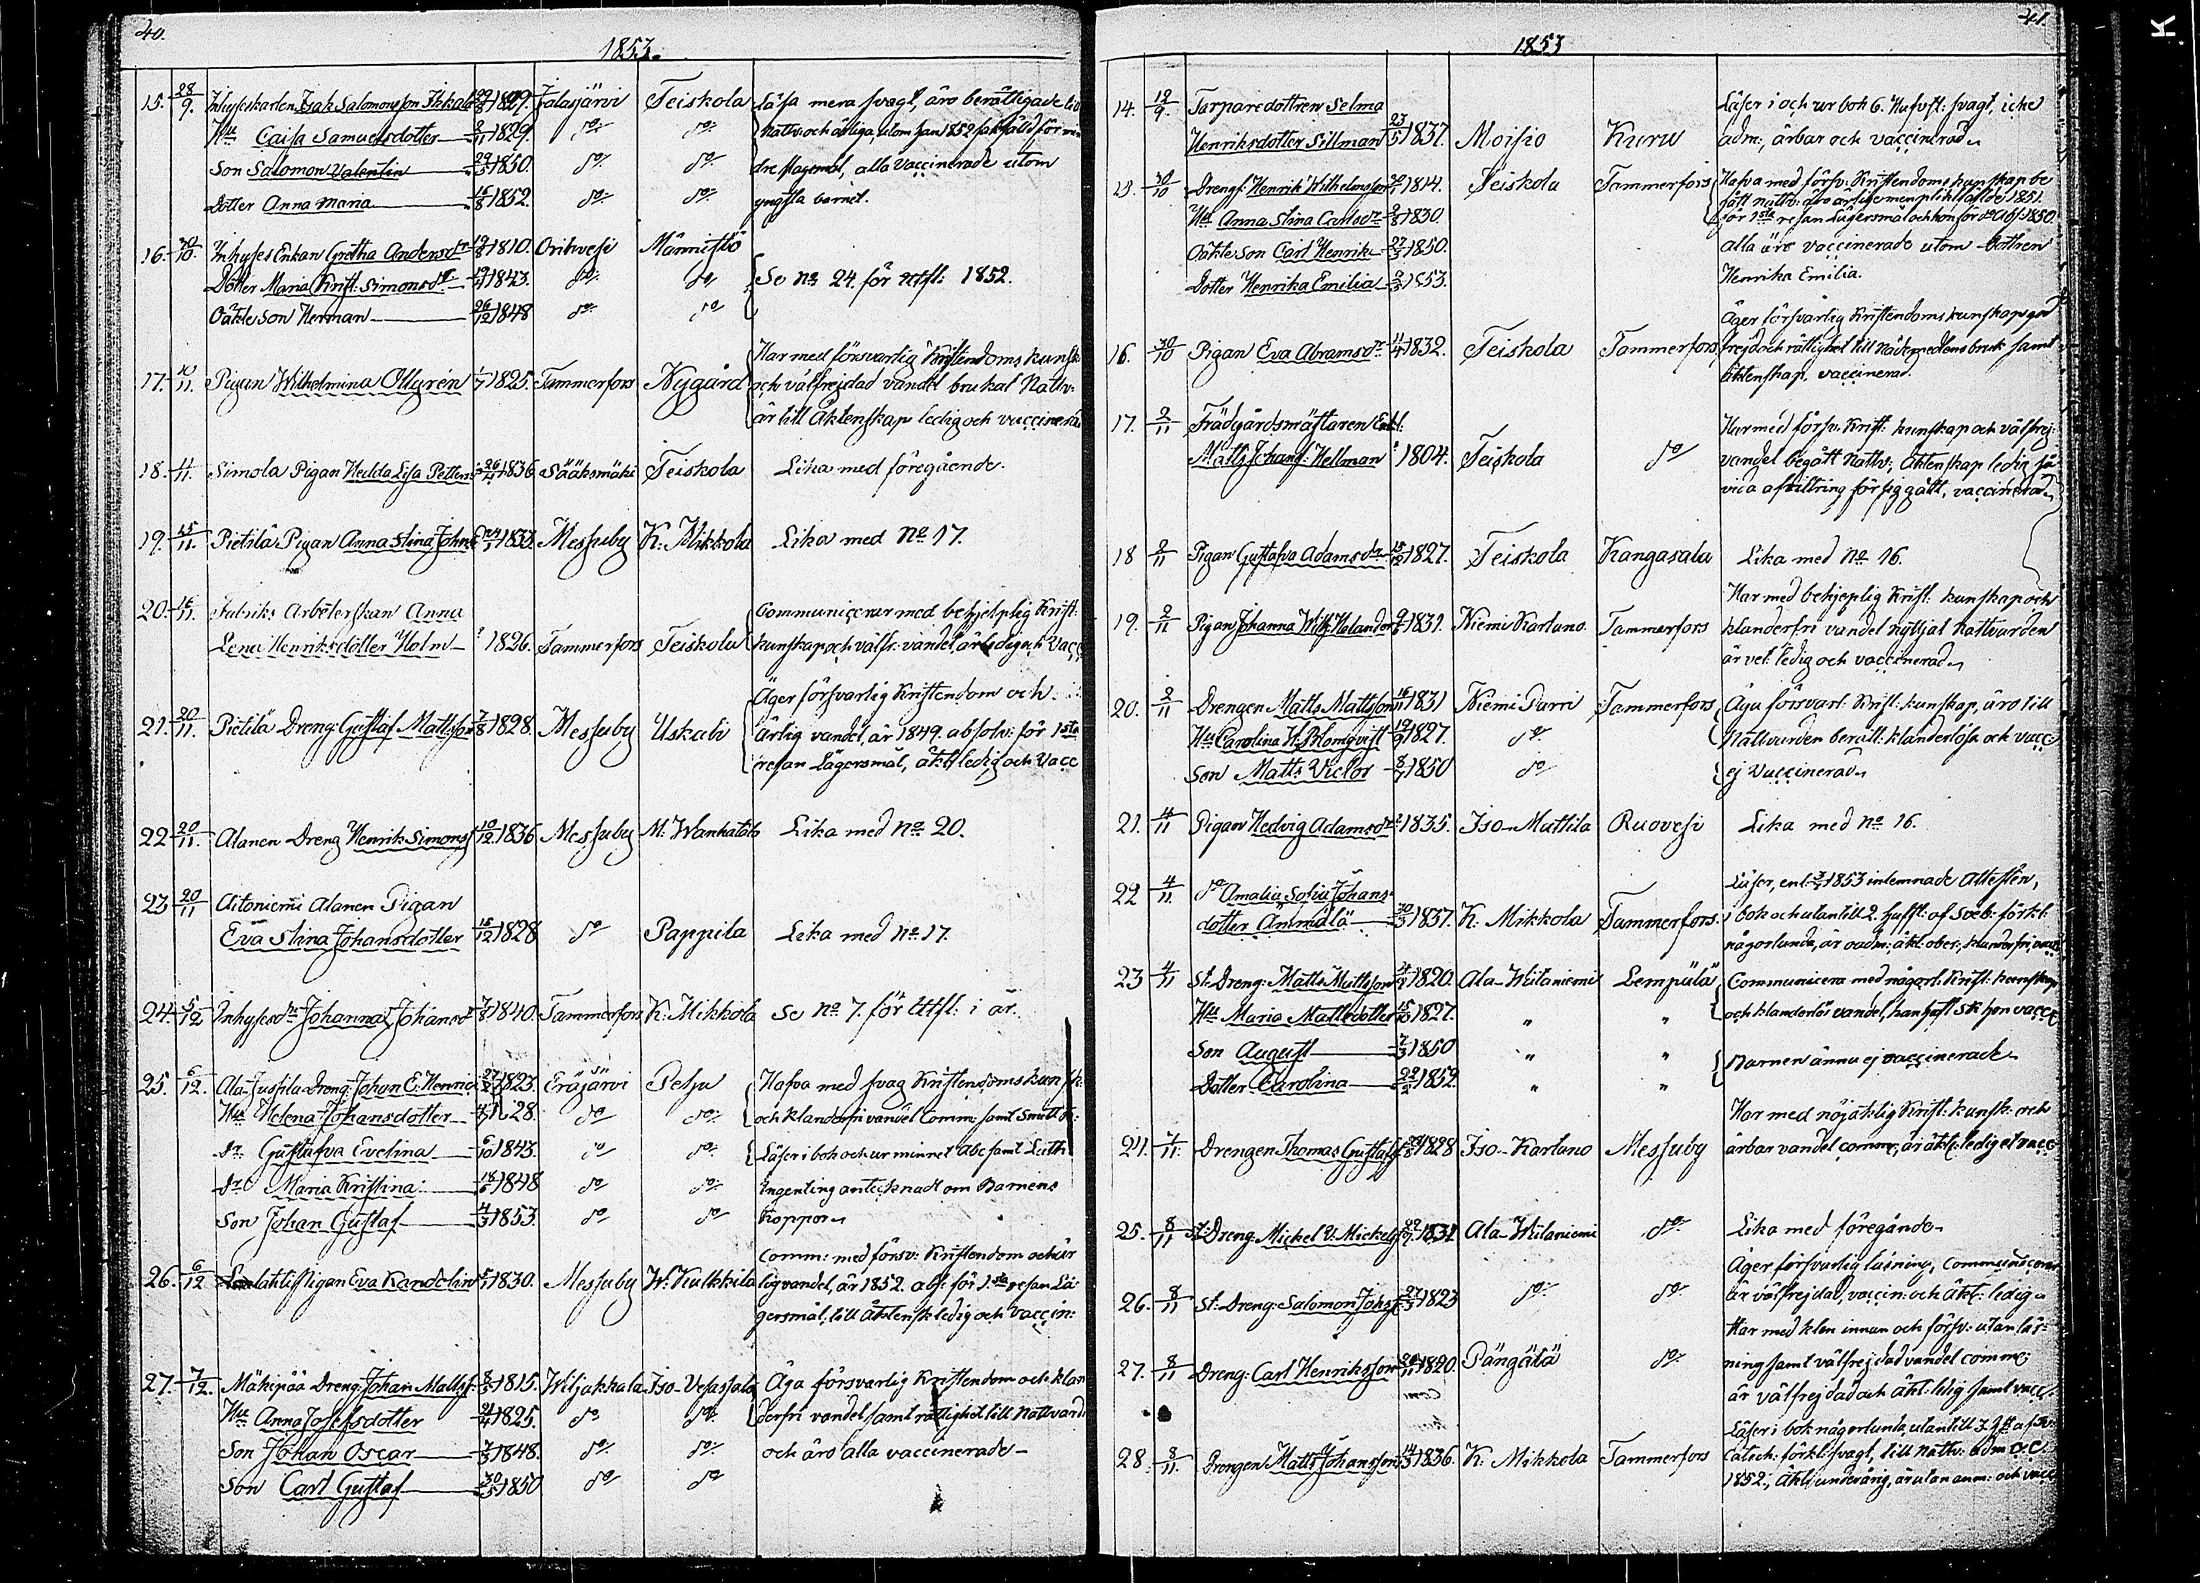 40.
1853.
15. 28/9. Inhyseskarlen Isak Salomonsson 1829. Jalasjärvi Teiskola Läsa mera svagt, äro berättigade till
Hu Caisa Samuelsdotter 1829. do do Nattv: och ärliga, utom han 1852
Son Salomon Valentin 29/3 1850. do do alla vaccinerade utom
Dotter Anna Maria 15/8 1852. do do yngsta barnet.
16. 30/10. Inhyses Enkan Gretha Andersdr 1810. Orihvesi Männistö
Dotter Maria Krist: Simonsdr 1843. do do Se No 24. för Utfl: 1852.
Oäkte Son Herman 26/12 1848 do do
Har med försvarlig Kristendoms kunsk
17. 10/11. Pigan Wilhelmina Ollgrén 1/7 1825. Tammerfors Nygård och välfrejdad vandel brukat Nattv:
är till Äktenskap ledig och vaccinerad
18. 11. Simola Pigan Hedda Lisa Petters 1836 Sääksmäki Teiskola Lika med föregående.
19. 15/11. Pietilä Pigan Anna Stina Johns 1833. Messuby K: Mikkola Lika med No 17.
20. 15/11. Fabriks Arbeterskan Anna Communicerar med behjelplig Krist:
Lena Henriksdotter Holm 1826. Tammerfors Teiskola kunskap och välfr: vandel, är ledig och Vacc
Äger försvarlig Kristendom och
21. 20/11. Pietilä Dreng: Gustaf Mattsson 7/8 1828. Messuby Uskali ärlig vandel, är 1849. absolv: för 1sta
resan Lägersmål, äkt: ledig och Vacc
22 20/11. Alanen Dreng Henrik Simonss 10/12 1836 Messuby M. Wanhatalo Lika med No 20.
23 20/11 Aitoniemi Alanen Pigan
Eva Stina Johansdotter 15/12 1828 do Pappila Lika med No 17.
24. 5/12 Inhysesdr Johanna Johansdr 1840. Tammerfors K: Mikkola Se No 7. för Utfl: i år.
25. 6/12. Ala-Jussila Dreng: Johan E: Henric 1823. Eräjärvi Pelju Hafva med svag Kristendoms kunsk:
Hu Helena Johansdotter 1828. do do och klanderfri vandel Comm: samt
Dr Gustafva Evelina 6/10 1843. do do Läser i bok och ur minnet Abc samt Luth
Dr Maria Kristina 1848 do do Ingenting antecknadt om Barnens
Son Johan Gustaf 4/3 1853. do do Koppor
Comm: med försv: Kristendom och är
26. 6/12 Pigan Eva Kandolin 1830. Messuby W: Kulkkila lig vandel, är 1852. abs: för 1sta resan Lä-
gersmål, till Äktensk ledig och vaccin:
27. 7/12. Mäkipää Dreng: Johan Mattss: 1815. Wiljakkala Iso-Vesasjala Äga försvarlig Kristendom och klan
Hu Anna Josefsdotter 1825. do do derfri vandel samt rättighet till Nattvard
Son Johan Oscar 1848. do do och äro alla vaccinerade
Son Carl Gustaf 30/3 1850 do do
41.
1853
14. 19/9. Torparedottren Selma Läser i och ur bok 6. Hufvst: svagt, icke
Henriksdotter Sillman 23/5 1837. Moisio Kuru adm:, ärbar och vaccinerad
15. 30/10 Drengs: Henrik Wilhelmsson 1814. Teiskola Tammerfors Hafva med försv: Kristendoms kunskap be
Hu Anna Stina Carlsdr 1830. gått nattv:
Oäkte Son Carl Henrik 27/3 1850. alla äro vaccinerade utom dottren
Dotter Henrika Emilia 1853. Henrika Emilia.
Äger försvarlig Kristendoms kunskap god
16. 30/10 Pigan Eva Abramsdr 11/4 1832. Teiskola Tammerfors frejd och rättighet till Nådemedlens bruk samt
äktenskap, vaccinerad.
17. 2/11 Trädgårdsmästaren Enkl: Har med försv: Krist: kunskap och välfrej:
Matts Johanss: Hellman 1804. Teiskola do vandel begått Nattv: Äktenskap ledig
vica afvittring för sig gått, vaccinerad
18 2/11 Pigan Gustafva Adamsdr 1827. Teiskola Kangasala Lika med No 16.
Har med behjeplig Krist: kunskap och
19. 2/11 Pigan Johanna Wilh: Holander 1831. Niemi Karlano Tammerfors klanderfri vandel nyttjat Nattvarden
är vel: ledig och vaccinerad
20. 2/11 Drengen Matts Mattsson 1831 Niemi Parri Tammerfors Äga försvarl: Krist: kunskap, äro till
Hu Carolina H: Blomqvist 1827. do Nattvarden berätt: klanderlösa och vacc
Son Matts Victor 8/7 1850 do ej Vaccinerad
21. 4/11 Pigan Hedvig Adamsdr 1835. Iso-Mattila Ruovesi Lika med No 16.
22 4/11. do Amalia Sofia Johans- Läser, enl: 1853 inlemnade Attesten,
dotter Ammälä 30/3 1837. K. Mikkola Tammerfors. i bok och utantill 2. hufst: af Sveb: förkl:
någorlunda, är oadm: äkt: ober:, klanderfri, vacc
23 4/11 St: Dreng: Matts Mattsson 1820. Ala-Wilaniemi Lempälä Communicera med någorl: Krist: kunskap
Hu Maria Mattsdotter 15/10 1827. „ „ och klanderlös vandel, han haft Sk: hon vacc
Son August 7/3 1850 „ „ Barnen ännu ej vaccinerade
Dotter Carolina 22/2 1852 „ „
Har med nöjaktig Krist: kunsk: och
24. 7/11. Drengen Thomas Gustafss 1828 Iso-Karlano Messuby ärbar vandel comm:, är äkt: ledig et vacc
25. 8/11 St: Dreng: Mickel V: Mickelss 22/7 1831 Ala-Wilaniemi do Lika med föregånde
Äger försvarlig läsning, Communicerar
26. 8/11 St: Dreng: Salomon Johss: 27/3 1823 do do är välfrejdad, vaccin: och äkt: ledig
Har med klen innan och försv: utan läs-
27. 8/11 Dreng: Carl Henriksson 1820. Pängälä do ning samt välfrejdad vandel comm:
är välfrejdad och äkt: ledig samt vacc:
Läser i bok någorlunda, utantill
28. 8/11. Drengen Matts Johansson 14/3 1836. K: Mikkola Tammerfors Catech: förkl: svagt, till Nattv: adm:
1852, Äkt: underårig, är utan anm: och vacc
K